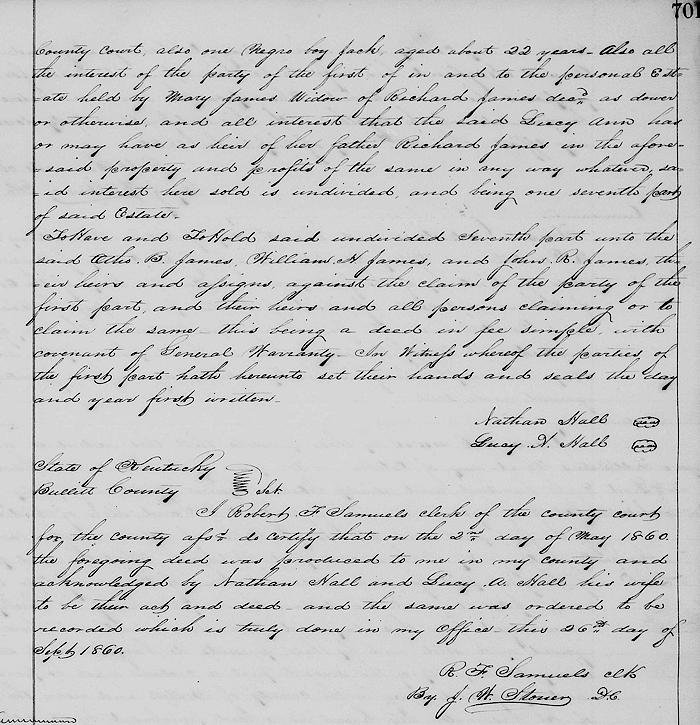 701
County Court, also one Negro boy Jack, aged about 22 years - Also all
the interest of the party of the first of in and to the personal Est-
-ate held by Mary James Widow of Richard James decd. as dower
or otherwise, and all interest that the said Lucy Ann has
or may have as heir of her father Richard James in the afore-
-said property and profits of the same in any way whatever, sa-
-id interest here sold is undivided, and being one seventh part
of said Estate -
To Have and To Hold said undivided Seventh part unto the
said Otho B. James, William H James, and John R. James, th-
-eir heirs and assigns, against the claim of the party of the
first part, and their heirs and all persons claiming or to
claim the same - this being a deed in fee simple, with
covenant of General Warranty - In Witness whereof the parties, of
the first part hath hereunto set their hands and seals the day
and year first written -
Nathan Hall seal
Lucy A. Hall seal
State of Kentucky
Bullitt County Sct.
I Robert F Samuels clerk of the county court
for the county afst do certify that on the 2nd day of May 1860.
the foregoing deed was produced to me in my county and
acknowledged by Nathan Hall and Lucy A. Hall his wife
to be their act and deed - and the same was ordered to be
recorded which is truly done in my Office - this 26th day of
Sept 1860.
R. F. Samuels clk
By. J. W. Stoner D.C.